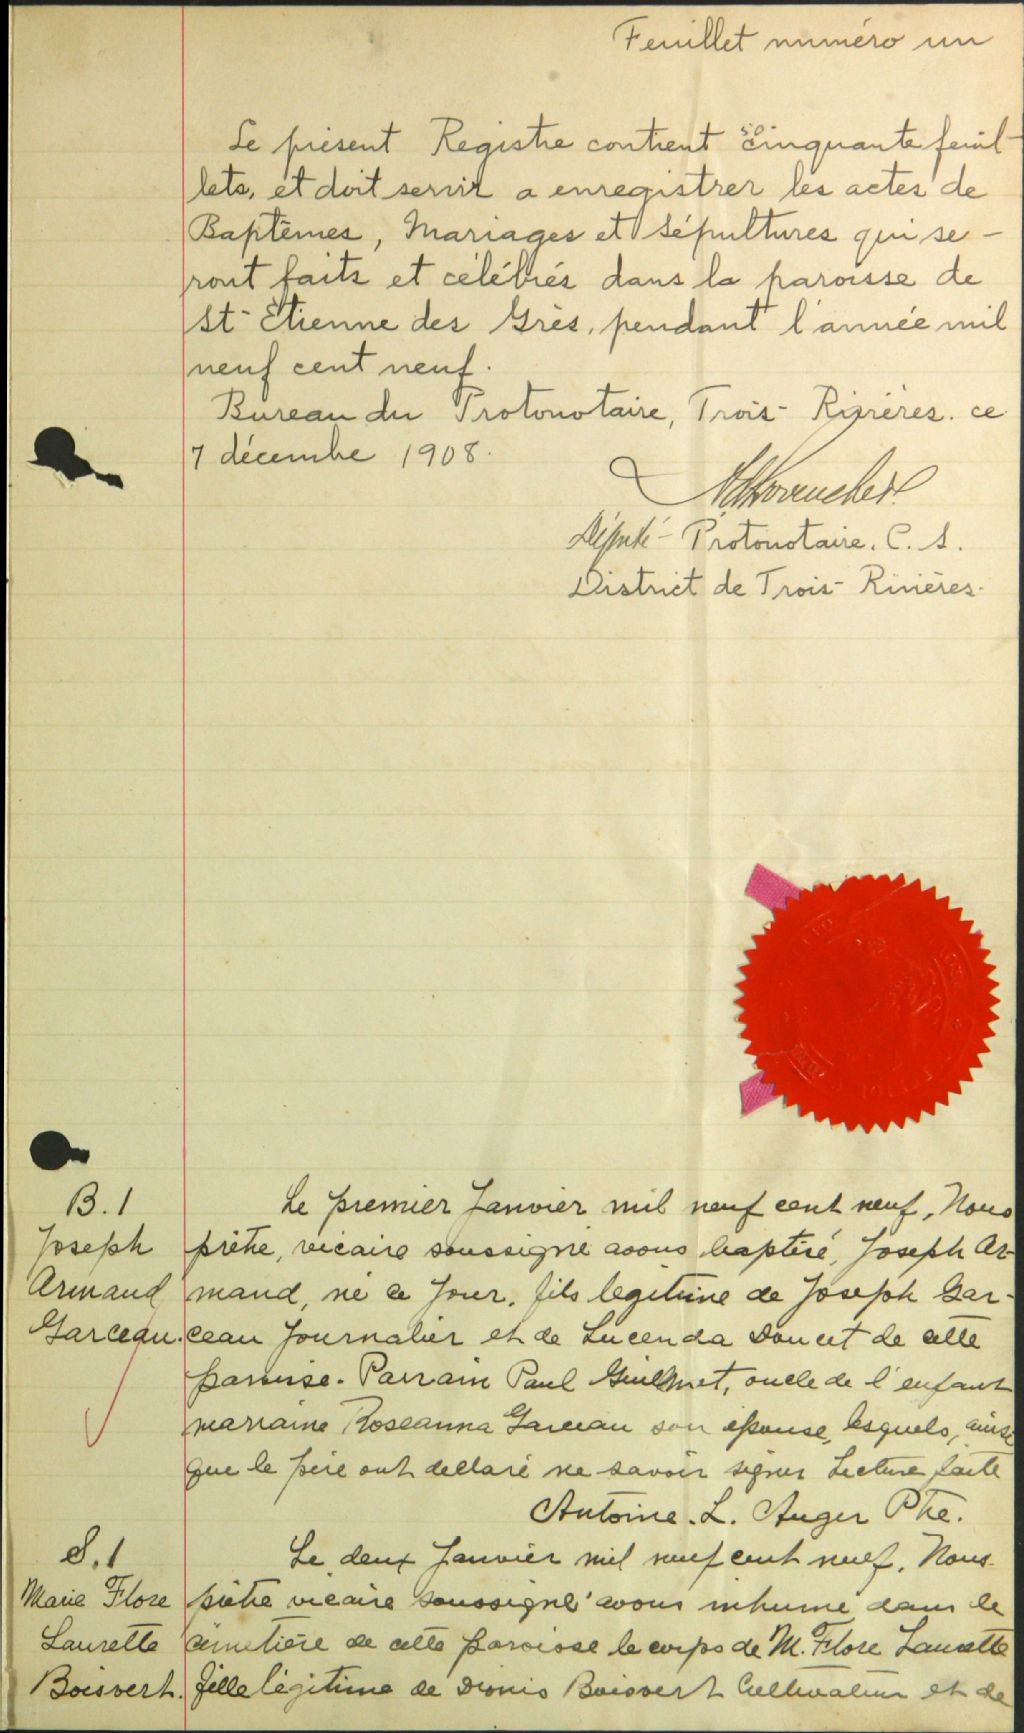 Feuillet numéro un
Le présent Registre contient cinquante feuil-
lets, et doit servir a enregistrer les actes de
Baptêmes, Mariages et Sépultures qui se-
ront faits et célébrés dans la paroisse de
St-Etienne des Grès, pendant l'année mil
neuf cent neuf.
Bureau du Protonotaire, Trois-Rivières. ce
7 décembre 1908.
Député-Protonotaire. C. S.
District de Trois-Rivières.
B. 1
Joseph
Armand
Garceau.
Le premier Janvier mil neuf cent neuf, Nous
prêtre, vicaire soussigné avons baptisé, Joseph Ar-
mand, né ce jour, fils legitime de Joseph Gar-
ceau Journalier et de Lucenda Doucet de cette
paroisse. Parrain Paul Guilmet, oncle de l'enfant
marraine Roseanna Garceau son épouse, lesquels, ainsi
que le père ont declaré ne savoir signer Lecture faite
Antoine. L. Auger Ptre.
S. 1
Marie Flore
Laurette
Boisvert.
Le deux Janvier mil neuf cent neuf, Nous
prêtre vicaire soussigné avons inhumé dans le
cimetière de cette paroisse le corps de M. Flore Laurette
fille légitime de Dionis Boisvert Cultivateur et de